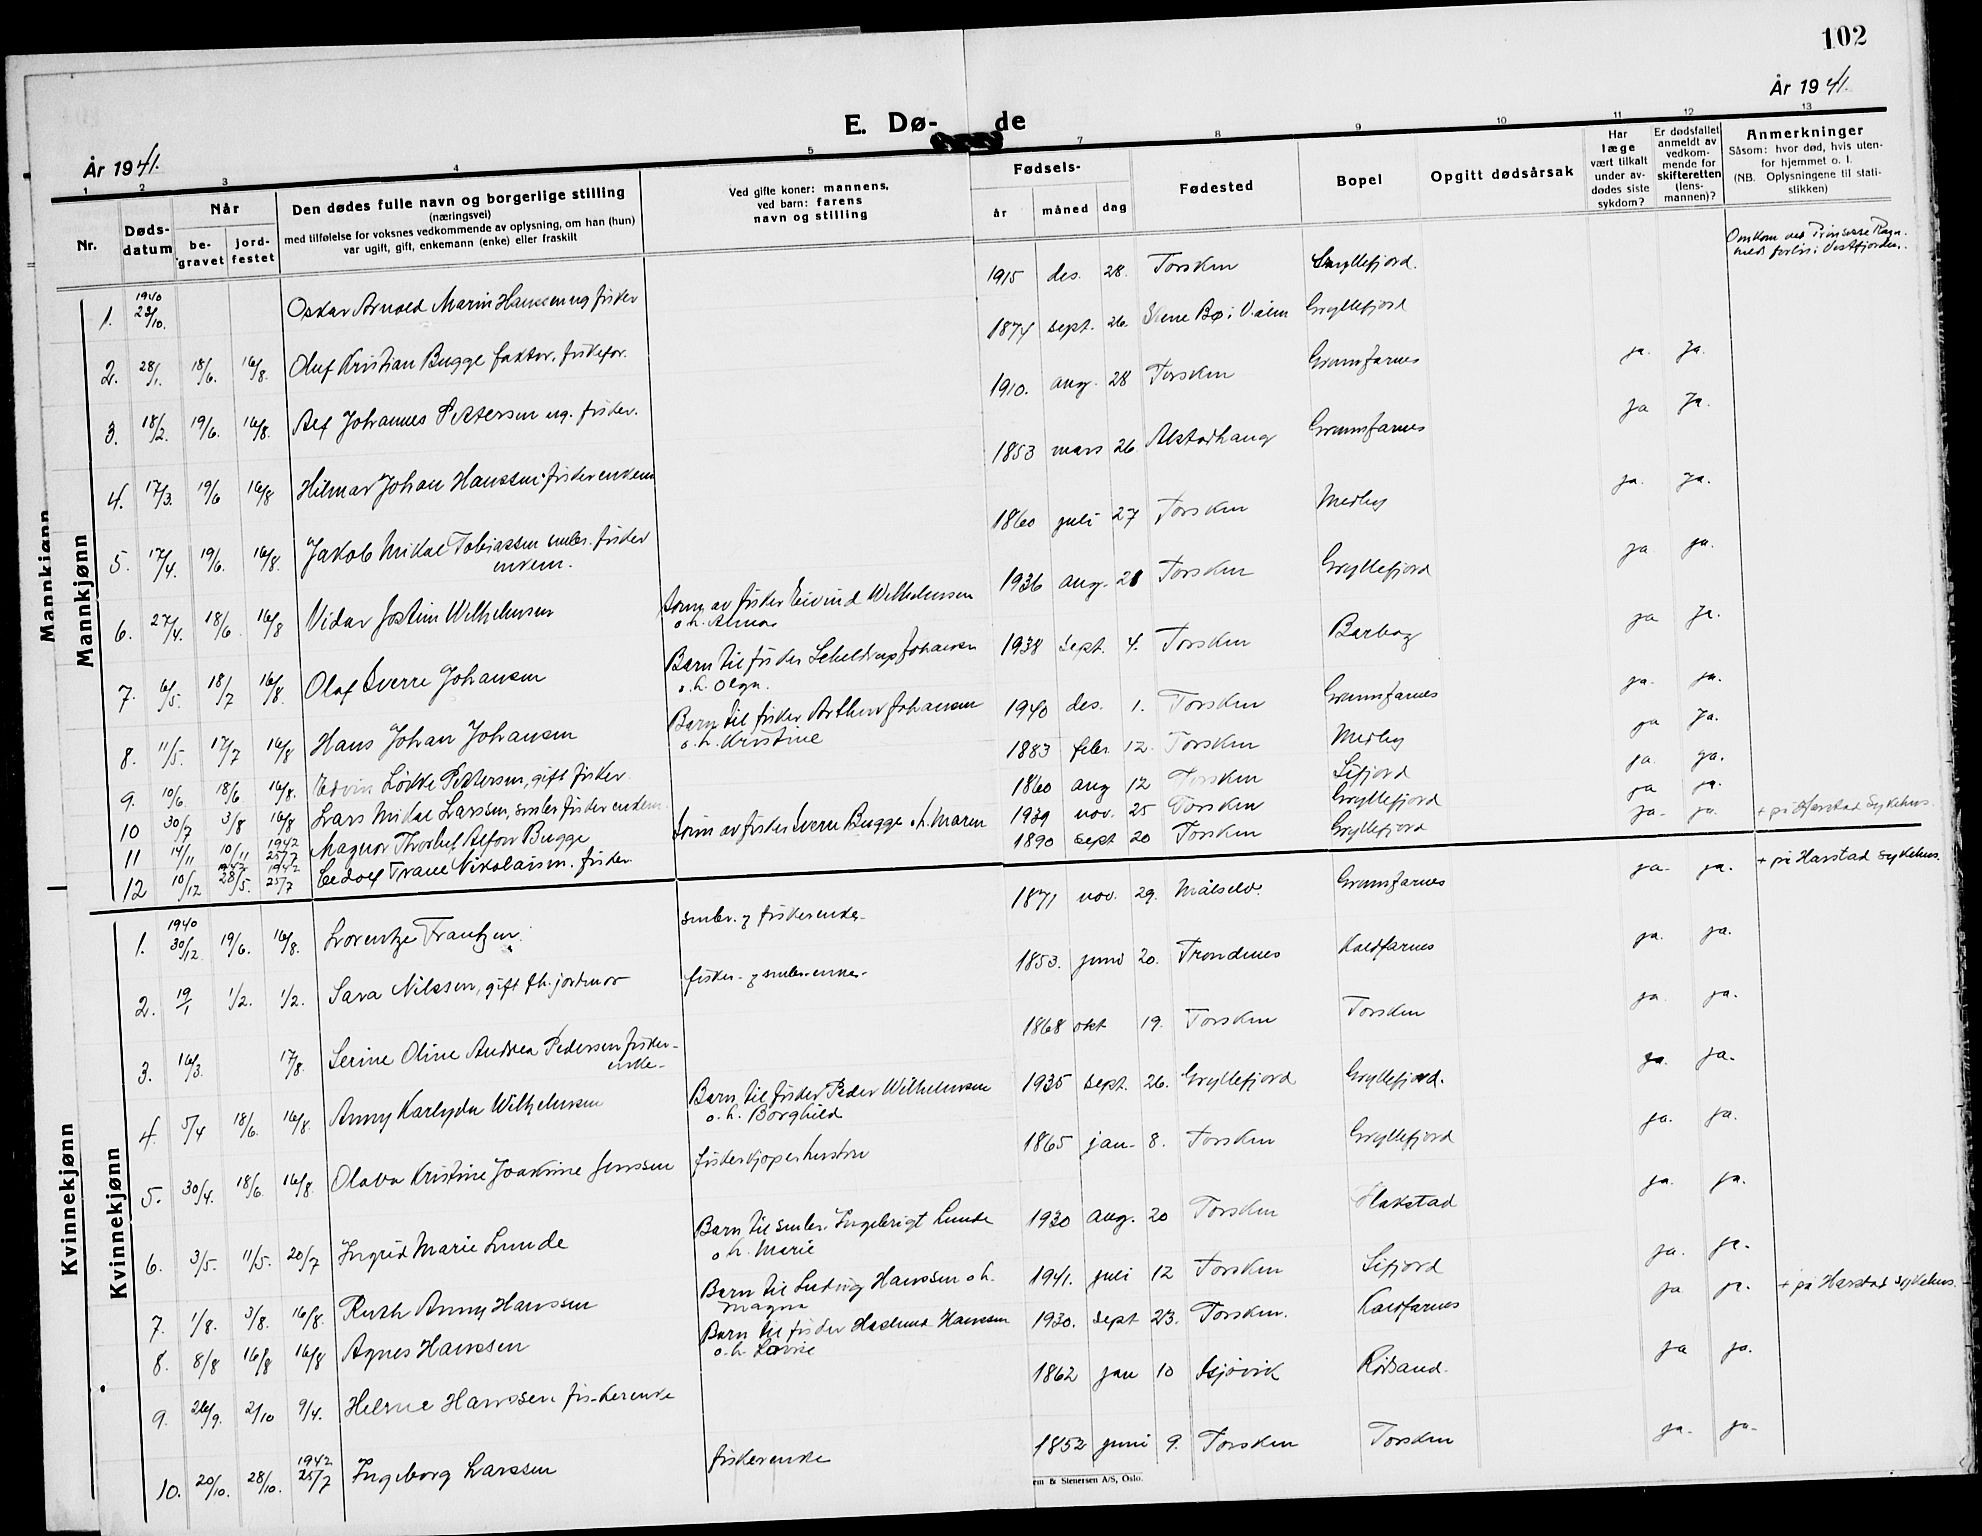 102
År 1941.
E. Dø- de
År 1941.
1 2 3 4 5 7 8 9 10 11 12 13
Nr.
Døds-
datum
Når
be-
gravet
jord-
festet
Den dødes fulle navn og borgerlige stilling
(næringsvei)
med tilføielse for voksnes vedkommende av oplysning, om han (hun)
var ugift, gift, enkemann (enke) eller fraskilt
Ved gifte koner: mannens,
ved barn: farens
navn og stilling
Fødsels-
år måned dag
Fødested
Bopel
Opgitt dødsårsak
Har
læge
vært tilkalt
under av-
dødes siste
sykdom?
Er dødsfallet
anmeldt av
vedkom-
mende for
skifteretten
(lens-
mannen)?
Anmerkninger
Såsom: hvor død, hvis uten-
for hjemmet o. l.
(NB. Oplysningene til stati-
stikken)
Mannkjønn
Mannkjønn
1. 1940 23/10. Oskar Arnold Marin Hansen ug fisker 1915 des. 28. Torsken Gryllefjord. Omkom ved Prinsesse Ragn-
hilds forlis i Vestfjorden.
2. 28/1. 18/6. 16/8. Oluf Kristian Bugge faktor, fiskefor. 1874 sept. 26. Bø i V.ålen Gryllefjord ja. ja.
3. 18/2. 19/6. 16/8. Alf Johannes Pettersen ug. fisker. 1910. aug. 28 Torsken Grunnfarnes ja ja.
4. 17/3. 19/6 16/8 Hilmar Johan Hanssen fisker enkem 1853 mars 26. Alstadhaug Grunnfarnes ja. ja.
5. 17/4. 19/6. 16/8. Jakob Mikal Tobiassen småbr. fisker
enkem. 1860 juli 27 Torsken Medby ja ja.
6. 27/4. 18/6. 16/8 Vidar Jostein Wilhelmsen Sønn av fisker Eivind Wilhelmsen
o. h. Alma 1936 aug. 21 Torsken Gryllefjord ja ja.
7. 6/5. 18/7 16/8. Olaf Sverre Johansen Barn til fisker Scheldrup Johansen
o. h. Olga. 1938 sept. 4. Torsken Barbog ja. ja.
8. 11/5. 17/7 16/8 Hans Johan Johansen Barn til fisker Arthur Johansen
o. h. Kristine 1940 des. 1. Torsken Grunnfarnes ja ja.
9. 10/6. 18/6 16/8. Edvin Løkke Pettersen, gift fisker. 1883 febr. 12. Torsken Medby ja. ja.
10 30/7 3/8 16/8 Lars Mikal Larssen, småbr. fisker enkem 1860 aug 12 Torsken Sifjord ja ja.
11 14/11 10/11 1942 25/7 Magnor Thorleif Alfon Bugge Sønn av fisker Sverre Bugge o. h. Maren 1939 nov. 25 Torsken Gryllefjord ja. ja + på Harstad Sykehus.
12 10/12 1942 28/5. 1942 25/7 Frane Nikolaisen. fisker. 1890 sept 20 Torsken Gryllefjord ja. ja. + på Harstad sykehus.
Kvinnekjønn
Kvinnekjønn
1. 1940 30/12. 19/6. 16/8. Lorentze Frantzen. småbr. og fiskerenke. 1871 nov. 29. Målselv. Grunnfarnes ja. ja.
2. 19/1 1/2. 1/2. Sara Nilssen, gift fh. jordmor fisker- og småbr.enke. 1853. juni 20. Trondenes Kaldfarnes ja. ja.
3. 16/3. 17/8. Serine Oline Andrea Pedersen fisker-
enke. 1868 okt 19. Torsken Torsken ja. ja.
4. 5/4 18/6. 16/8. Anny Karlyda Wilhelmsen Barn til fisker Peder Wilhelmsen
o. h. Borghild 1935 sept. 26. Gryllefjord Gryllefjord. ja. ja.
5. 30/4. 18/6. 16/8. Olava Kristine Joakime Jenssen fiskerkjøperhustru 1865 jan. 8. Torsken Gryllefjord ja. ja.
6. 3/5. 11/5. 20/7 Ingrid Marie Lunde Barn til småbr. Ingebrigt Lunde
o. h. Marie 1930 aug. 20 Torsken Flakstad ja. ja.
7. 1/8. 3/8. 16/8. Ruth Anny Hanssen Barn til Ludvig Hanssen o. h.
Magna 1941. juli 12 Torsken Sifjord ja ja.
8. 8/8 16/8 16/8 Agnes Hanssen Barn til fisker Haslund Hanssen
o. h. Lovise 1930. sept 23. Torsken. Kaldfarnes + på Harstad sykehus.
9. 26/9. 2/10 9/4. Helene Hanssen fiskerenke 1862 jan 10 Gjøvik Rødsand. ja ja.
10. 20/10. 28/10. 1942 25/7 Ingeborg Larssen fiskerenke 1852 juni 9. Torsken Torsken ja. ja.
em & Stenersen A/S, Oslo.